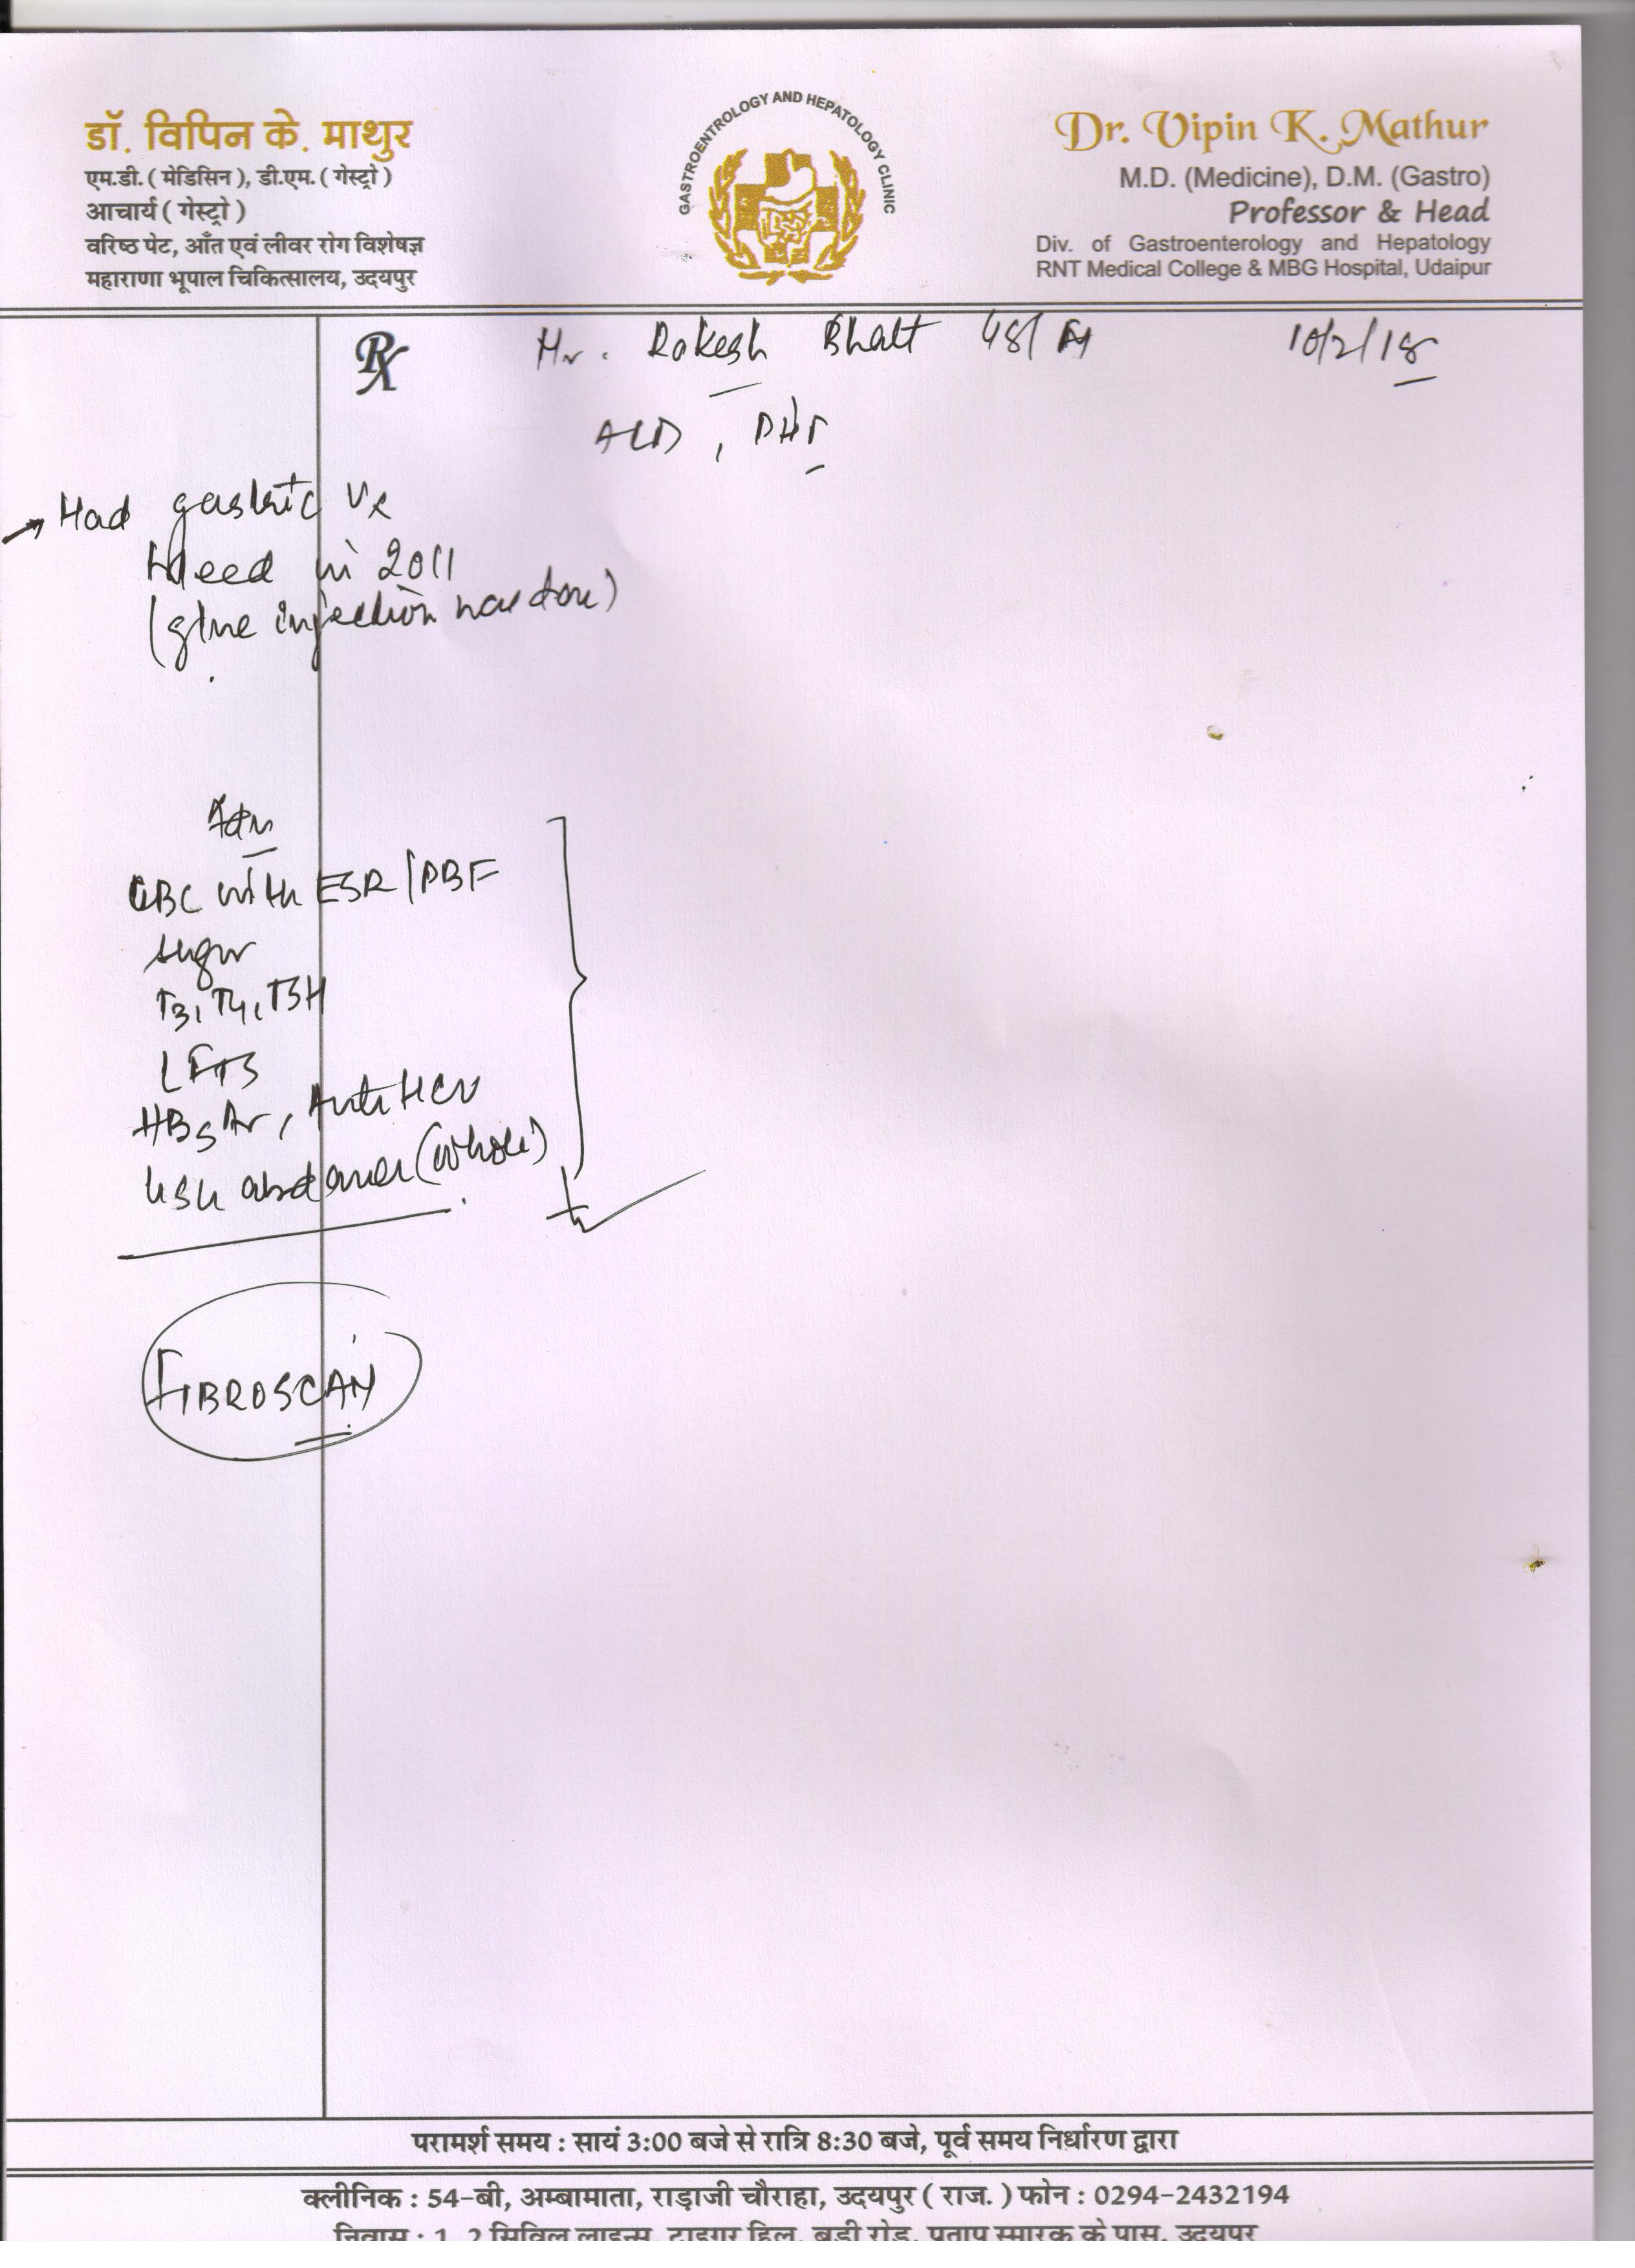 डॉ. विपिन के. माथुर
एम.डी. ( मेडिसिन ), डी.एम. ( गेस्ट्रो )
आचार्य ( गेस्ट्रो )
वरिष्ठ पेट, आँत एवं लीवर रोग विशेषज्ञ
महाराणा भूपाल चिकित्सालय, उदयपुर
GASTROENTROLOGY AND HEPATOLOGY CLINIC
Dr. Vipin K. Mathur
M.D. (Medicine), D.M. (Gastro)
Professor & Head
Div. of Gastroenterology and Hepatology
RNT Medical College & MBG Hospital, Udaipur
Rx
Mr. Rakesh Bhatt 48/M 10/2/18
ALD, PHT
Had gastric Vx
bleed in 2011
(glue injection was done)
Adv
CBC with ESR/PBF
sugar
T3, T4, TSH
LFTs
HBsAg, Anti HCV
USG abdomen (whole)
FIBROSCAN
परामर्श समय : सायं 3:00 बजे से रात्रि 8:30 बजे, पूर्व समय निर्धारण द्वारा
क्लीनिक : 54-बी, अम्बामाता, राड़ाजी चौराहा, उदयपुर ( राज. ) फोन : 0294-2432194
निवास : 1, 2 सिविल लाइन्स, टाइगर हिल, बड़ी रोड, प्रताप स्मारक के पास, उदयपुर